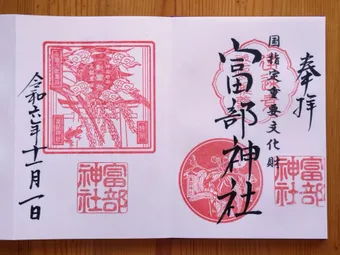 奉拝
国指定重要文化財
富部神社
富部
神社
令和六年十一月一日
富部
神社